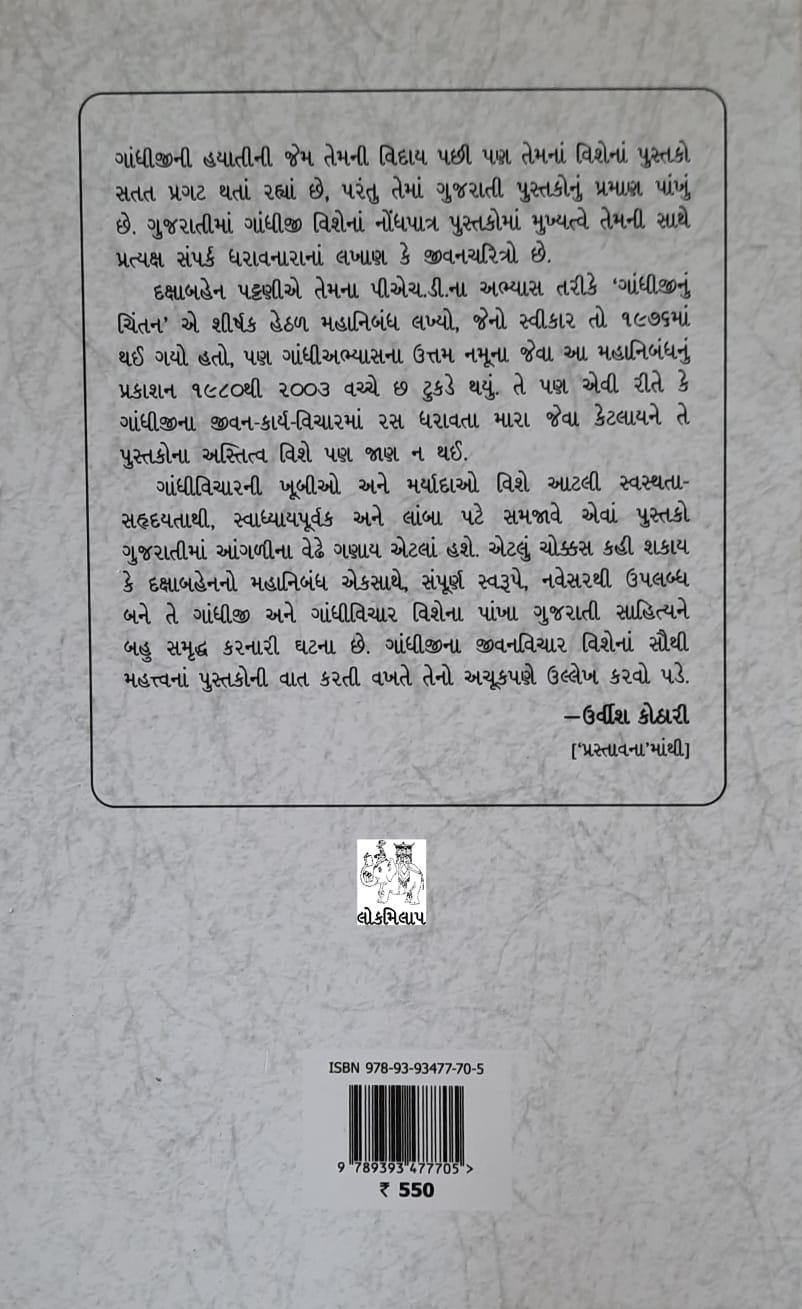 ગાંધીજીની હયાતીની જેમ તેમની વિદાય પછી પણ તેમનાં વિશેનાં પુસ્તકો
સતત પ્રગટ થતાં રહ્યાં છે, પરંતુ તેમાં ગુજરાતી પુસ્તકોનું પ્રમાણ પાંખું
છે. ગુજરાતીમાં ગાંધીજી વિશેનાં નોંધપાત્ર પુસ્તકોમાં મુખ્યત્વે તેમની સાથે
પ્રત્યક્ષ સંપર્ક ધરાવનારાનાં લખાણ કે જીવનચરિત્રો છે.
દક્ષાબહેન પટ્ટણીએ તેમના પીએચ.ડી.ના અભ્યાસ તરીકે ‘ગાંધીજીનું
ચિંતન’ એ શીર્ષક હેઠળ મહાનિબંધ લખ્યો, જેનો સ્વીકાર તો ૧૯૭૬માં
થઈ ગયો હતો, પણ ગાંધીઅભ્યાસના ઉત્તમ નમૂના જેવા આ મહાનિબંધનું
પ્રકાશન ૧૯૮૦થી ૨૦૦૩ વચ્ચે છ ટુકડે થયું. તે પણ એવી રીતે કે
ગાંધીજીના જીવન-કાર્ય-વિચારમાં રસ ધરાવતા મારા જેવા કેટલાયને તે
પુસ્તકોના અસ્તિત્વ વિશે પણ જાણ ન થઈ.
ગાંધીવિચારની ખૂબીઓ અને મર્યાદાઓ વિશે આટલી સ્વસ્થતા-
સહૃદયતાથી, સ્વાધ્યાયપૂર્વક અને લાંબા પટે સમજાવે એવાં પુસ્તકો
ગુજરાતીમાં આંગળીના વેઢે ગણાય એટલાં હશે. એટલું ચોક્કસ કહી શકાય
કે દક્ષાબહેનનો મહાનિબંધ એકસાથે, સંપૂર્ણ સ્વરૂપે, નવેસરથી ઉપલબ્ધ
બને તે ગાંધીજી અને ગાંધીવિચાર વિશેના પાંખા ગુજરાતી સાહિત્યને
બહુ સમૃદ્ધ કરનારી ઘટના છે. ગાંધીજીના જીવનવિચાર વિશેનાં સૌથી
મહત્ત્વનાં પુસ્તકોની વાત કરતી વખતે તેનો અચૂકપણે ઉલ્લેખ કરવો પડે.
—ઉર્વીશ કોઠારી
[‘પ્રસ્તાવના’માંથી]
લોકમિલાપ
ISBN 978-93-93477-70-5
9 789393 477705 >
₹ 550